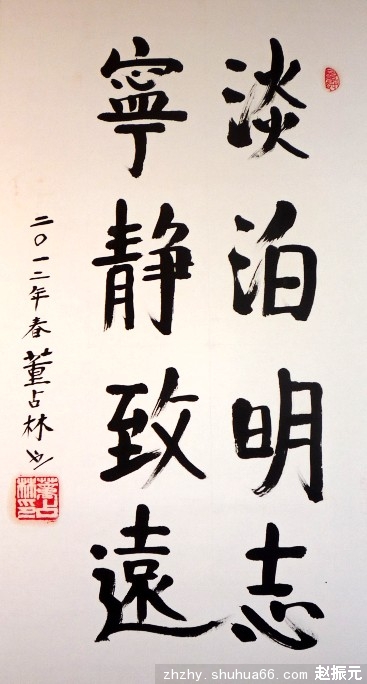 淡泊明志
寧静致遠
二〇一二年春董占林
董占林印
zhzhy.shuhua66.com 赵振元